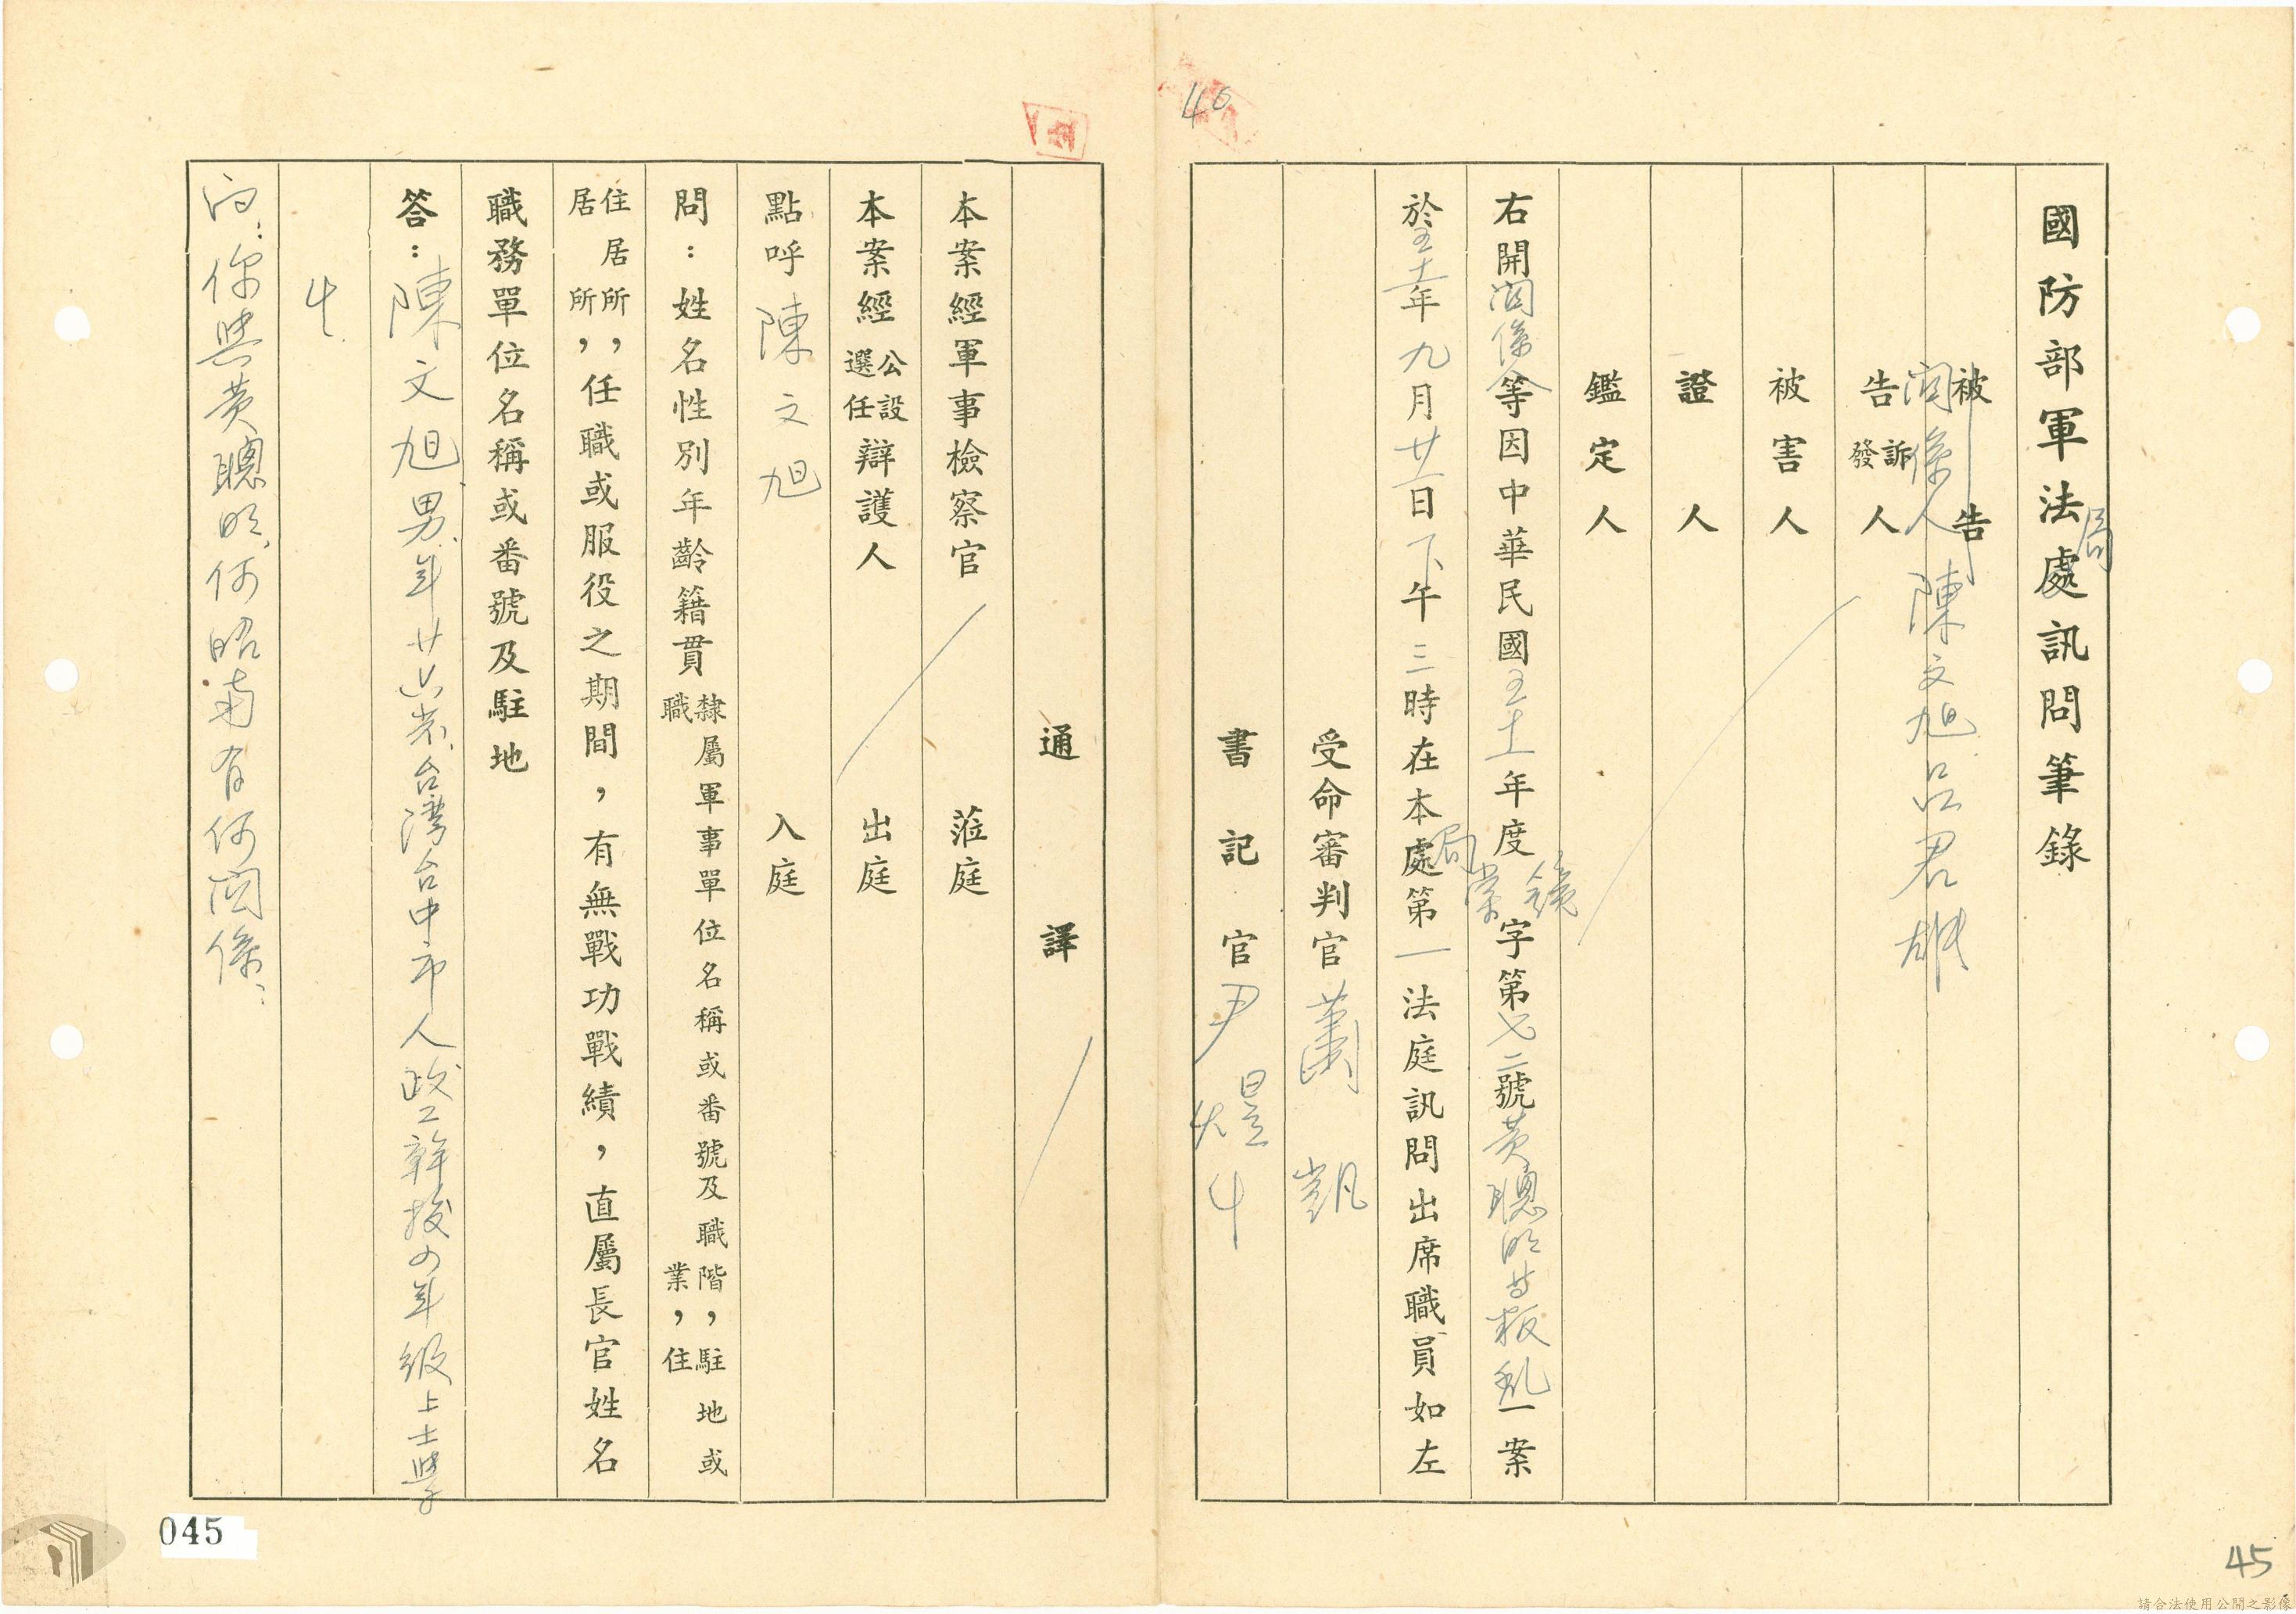 國防部軍法處訊問筆錄
局
被告
關係人 陳文旭 呂君雄
告訴發人
被害人
證人
鑑定人
右開關係人等因中華民國五十一年度鏡棠字第七二號黃聰明等叛亂一案
於五十一年九月廿一日下午三時在本處局第一法庭訊問出席職員如左
受命審判官 蕭凱
書記官 尹煜
通譯
本案經軍事檢察官 蒞庭
本案經公設選任辯護人 出庭
點呼 陳文旭 入庭
問：姓名性別年齡籍貫隸屬軍事單位名稱或番號及職階，駐地或職業，住
居所住居所，任職或服役之期間，有無戰功戰績，直屬長官姓名
職務單位名稱或番號及駐地
答：陳文旭 男 年廿 台灣台中市人 政工幹校四年級上士學
生
問：你與黃聰明、何昭南有何關係：
46
45
045
請合法使用公開之影像